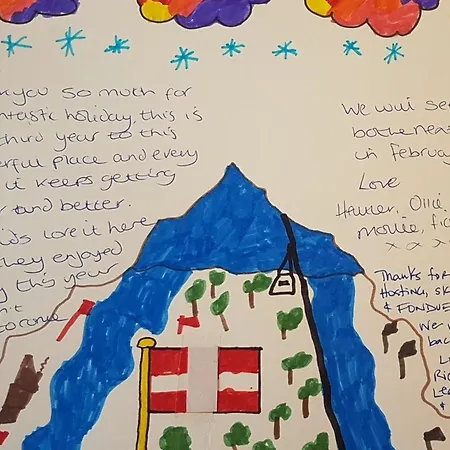 you so much for
ntastic holiday, this is
third year to this
erful place and every
it keeps getting
and better.
ds love it here
they enjoyed
this year
n't
to come
We will see
in February
Love
Ollie,
mollie,
x x x
Thanks for
Hosting, sk
& FONDUE
We w
bac
Lo
Ric
Lea
&